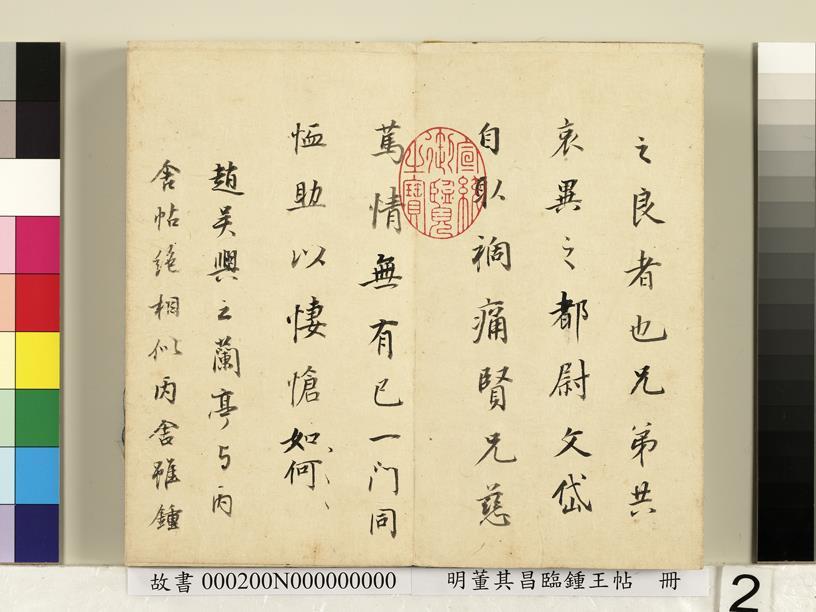 之良者也兄弟共
哀異之都尉文岱
自取禍痛賢兄慈
篤情無有已一门同
恤助以悽愴如何、、
趙吳興之蘭亭与丙
舍帖絶相似丙舍雖鍾
宣統御覽之寶
故書 000200N000000000
明董其昌臨鍾王帖 冊
2